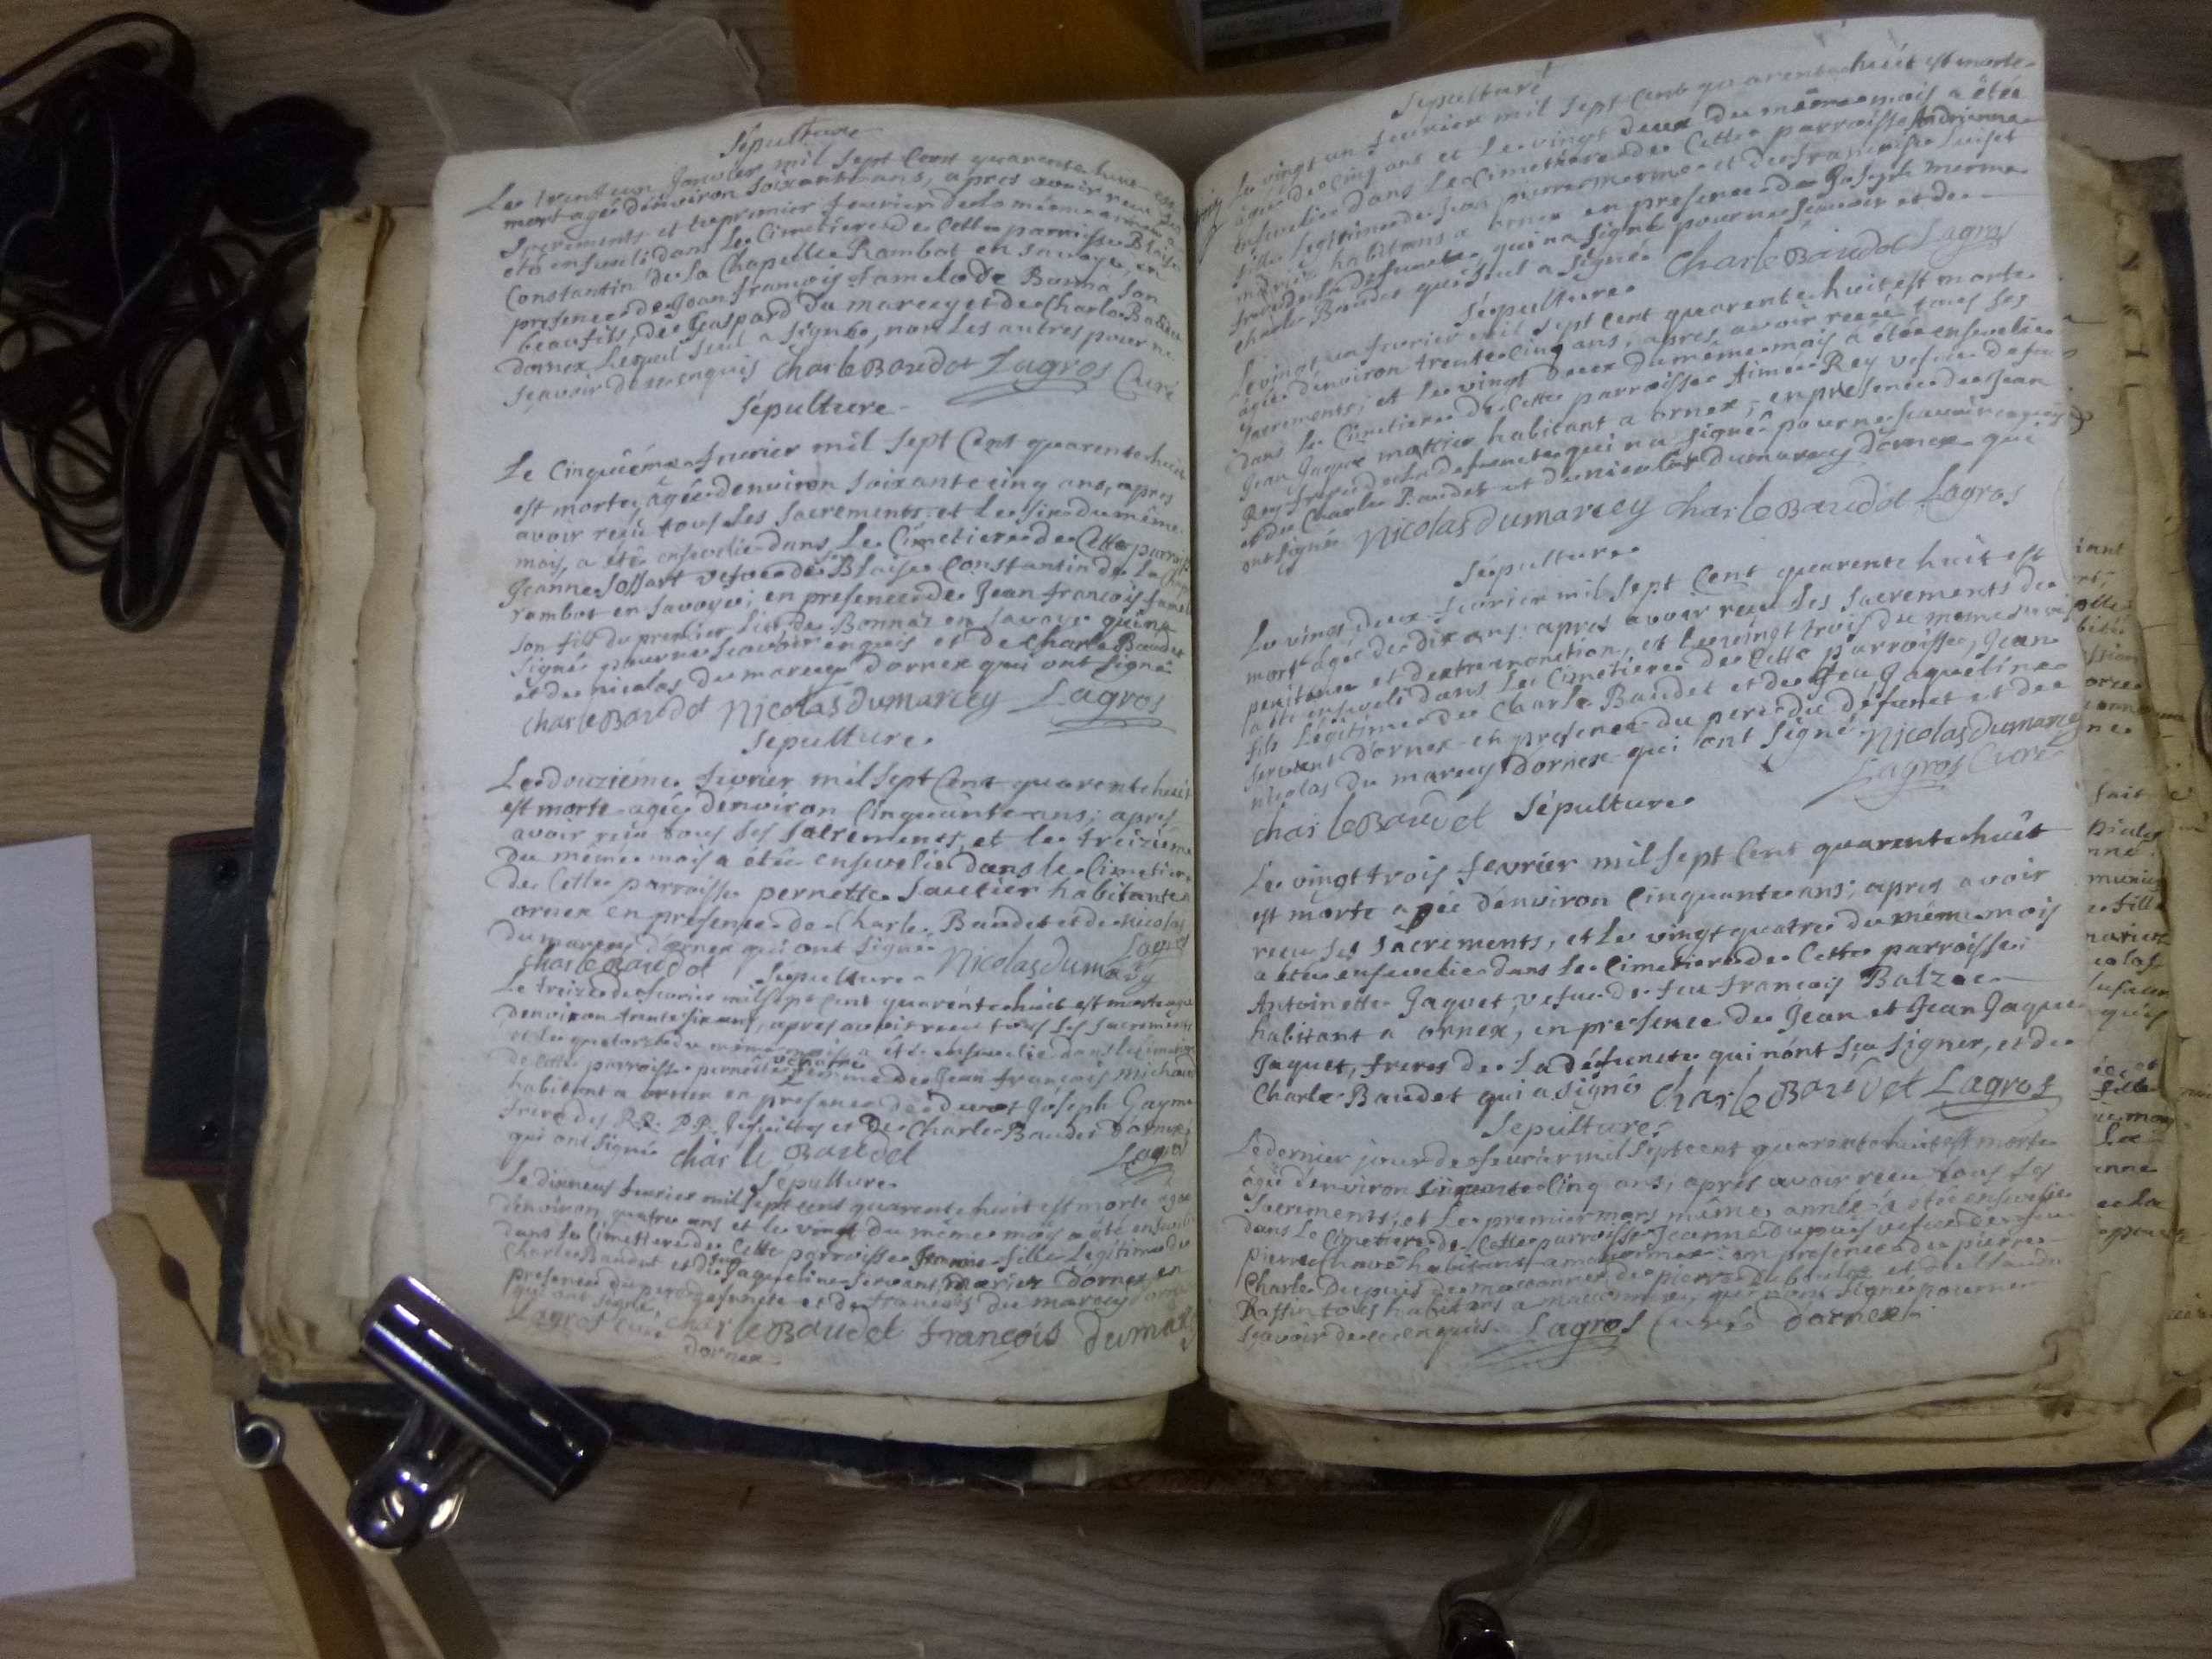 Sépulture
Le trente un Janvier mil sept Cent quarente huit est
mort agé denviron soixante ans, apres avoir receu ses
Sacrements et le premier fevrier de la même année a
eté enseveli dans Le Cimetiere de Cette parroisse Blaise
Constantin de la Chapelle Rambot en Savoye, en
presence de Jean françois famel de Bonna son
beau fils, de Gaspard du marcey et de Charle Baudet
dornex Lequel seul a signé, non Les autres pour ne
sçavoir de ce enquis Charle Baudet Lagros Curé
Sépulture
Le Cinquiéme fevrier mil sept Cent quarente huit
est morte, âgée denviron soixante cinq ans, apres
avoir reçû tous ses sacrements, et le six du même
mois, a été ensevelie dans Le Cimetiere de Cette parroisse
Jeanne Jossart vefve de Blaise Constantin de la Chap
rambot en Savoye; en presence de Jean françois famel
son fils du premier lit de Bonnaz en Savoye qui na
signé pour ne sçavoir enquis et de Charle Baudet
et de nicolas du marcey dornex qui ont signé
Charle Baudet Nicolas Dumarcey Lagros
Sépulture
Le douziéme fevrier mil sept Cent quarente huit
est morte agée denviron Cinquante ans; apres
avoir reçu tous ses sacrements, et le treiziéme
du même mois a étée ensevelie dans le Cimetiere
de Cette parroisse pernette Sautier habitante
ornex en presence de Charle Baudet et de nicolas
du marcey dornex qui ont signé Lagros
Charle Baudet Nicolas Dumarcey
Sépulture
Le treize de fevrier mil sept cent quarente huit est morte agée
denviron trente six ans, apres avoir receu tous ses sacrements
et le quatorze du même mois a été ensevelie dans le Cimetiere
de cette parroisse pernette femme de Jean françois Michaud
habitant a ornex en presence de Joseph Gayme
frere des R.R. P.P. Jesuittes et De Charle Baudet Dornex
qui ont signé Charle Baudet Lagros
Sépulture
Le dixneuf fevrier mil sept cent quarente huit est morte agée
denviron quatre ans et le vingt du même mois a été ensevelie
dans le Cimettiere de Cette parroisse Jeanne fille Légitime de
Charle Baudet et de feu Jaqueline Servant, mariés Dornex en
presence du pere de la defuncte et de françois du marcey
qui ont signé,
Lagros curé Charle Baudet françois Dumarcey
dornex
Sépulture
Le vingt un fevrier mil sept Cent quarente huit est morte
âgée de cinq ans et Le vingt deux du même mois a étée
ensevelie dans Le Cimettiere de Cette parroisse Andrienne
fille Legitime de Jean pierre merme et de françoise Luiset
mariés habitans a ornex en presence de Joseph merme
frere de la défuncte, qui na signé pour ne sçavoir et de
Charle Baudet qui seul a signé Charle Baudet Lagros
Sépulture
Le vingt un fevrier mil sept cent quarente huit est morte
agée denviron trente cinq ans, apres avoir receu tous ses
sacrements; et Le vingt deux du même mois a étée ensevelie
dans Le Cimetiere de Cette parroisse Aimée Rey vefve de feu
Jean Jaque mattier habitant a ornex, en presence de Jean
Rey frere de la defuncte qui na signé pour ne sçavoir enquis
et de Charle Baudet et de nicolas dumarcey dornex qui
ont signé Nicolas Dumarcey Charle Baudet Lagros
Sépulture
Le vingt deux fevrier mil sept Cent quarente huit est
mort âgé de dix ans apres avoir receu Les sacrements de
penitence et dextremonction, et Le vingt trois du même mois
a été enseveli dans Le Cimetiere de Cette parroisse, Jean
fils Légitime de Charle Baudet et de feu Jaqueline
Servant Dornex en presence du pere du défunct et de
nicolas du marcey Dornex qui ont signé Nicolas Dumarcey
Charle Baudet Lagros Curé
Sépulture
Le vingt trois fevrier mil sept Cent quarente huit
est morte agée denviron Cinquante ans; apres avoir
receu ses sacrements, et Le vingt quatre du même mois
a étée ensevelie dans Le Cimetiere de Cette parroisse
Antoinette Jaquet, vefue de feu françois Balzac
habitant a ornex, en presence de Jean et Jean Jaque
Jaquet, freres de La défuncte qui nónt sçu signer, et de
Charle Baudet qui a signé Charle Baudet Lagros
Sépulture
Le dernier jour de fevrier mil sept cent quarente huit est morte
âgée d'environ cinquante cinq ans, aprés avoir receu tous ses
Sacrements, et Le premier mars même année a étée ensevelie
dans Le Cimetiere de Cette parroisse Jeanne Dupuis vefve de feu
pierre Chave habitans a maconnex en presence de pierre
Charle Dupuis de maconnex de pierre et de Claude
Ruffin tous habitans a maconnex, qui nont signé pour ne
sçavoir de ce enquis. Lagros curé Dornex